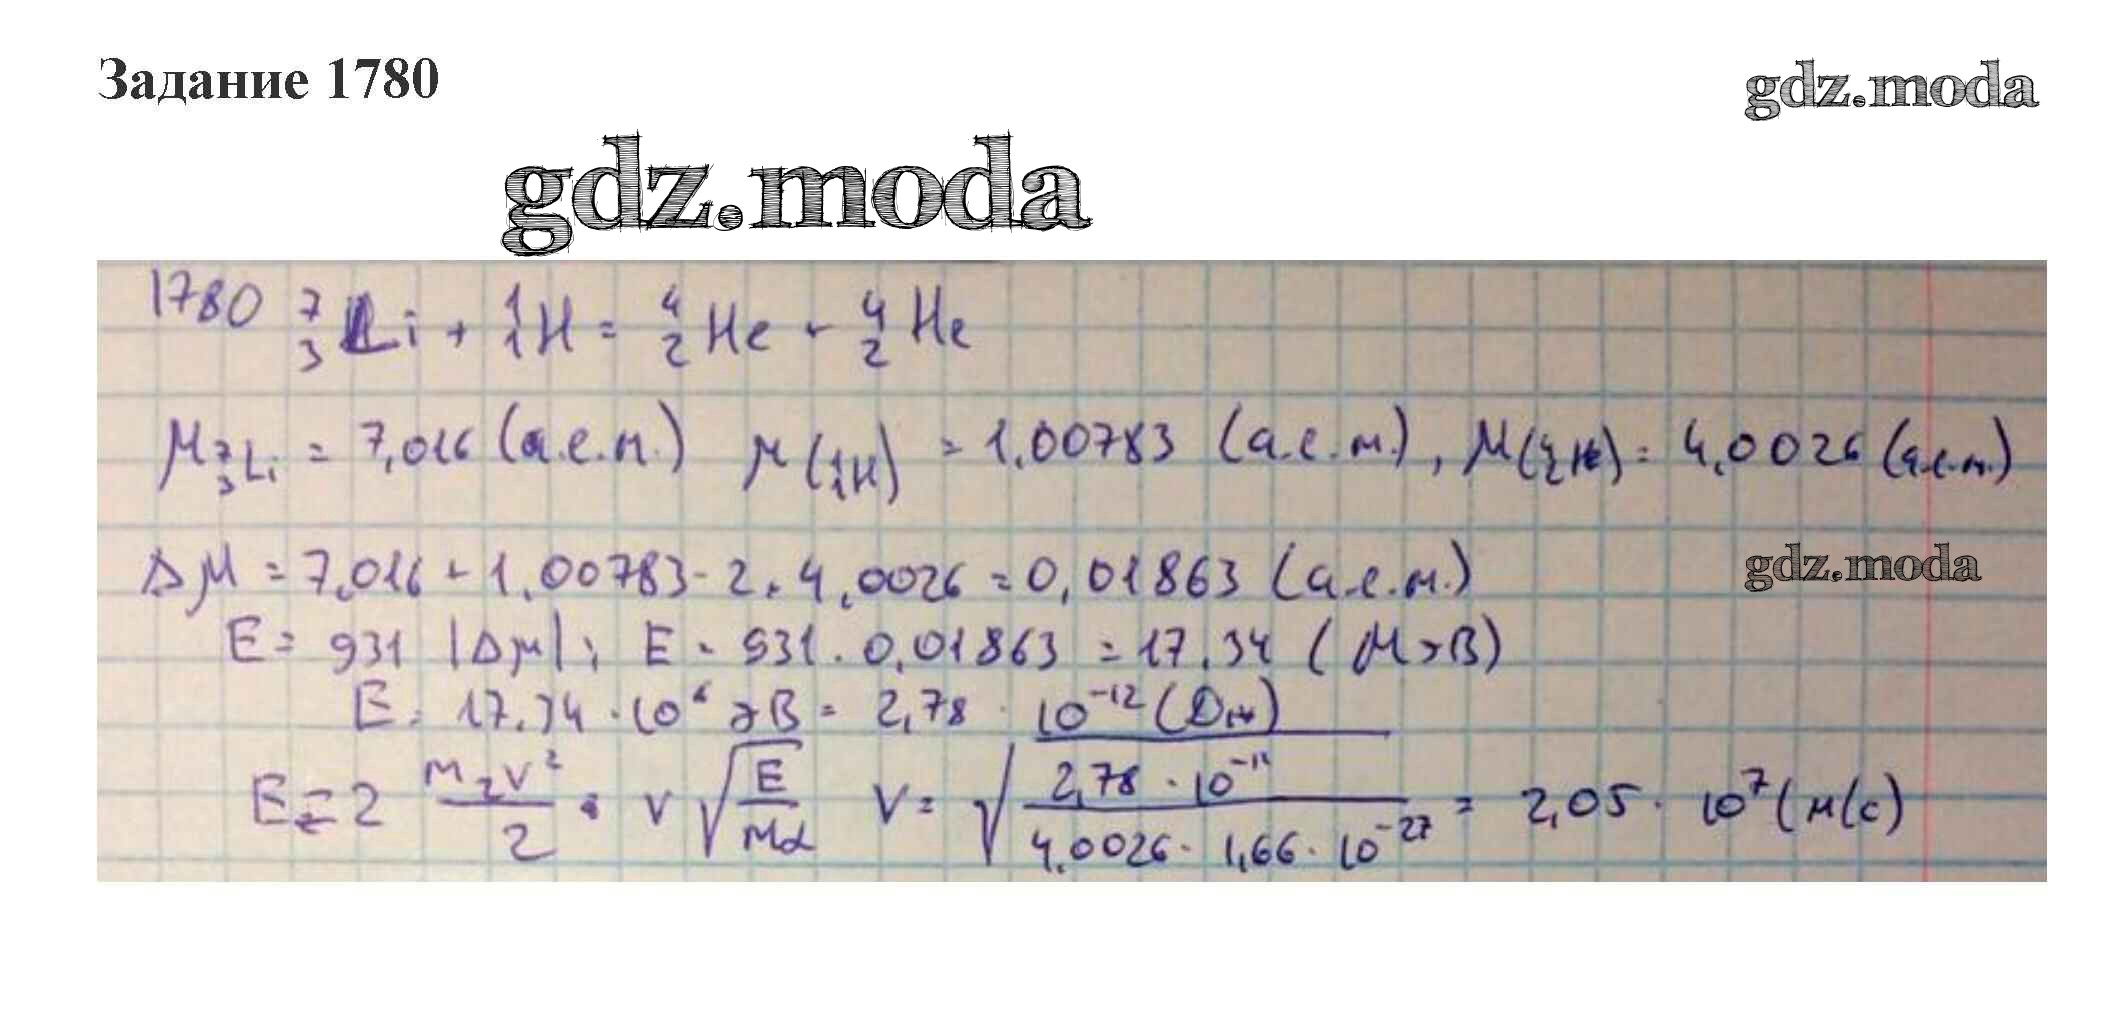 Задание 1780
gdz.moda
gdz.moda
1780 ⁷₃Li + ¹₁H = ⁴₂He + ⁴₂He
M ⁷₃Li = 7,016 (а.е.м.) M(¹₁H) = 1,00783 (а.е.м.), M(⁴₂He) = 4,0026 (а.е.м)
ΔM = 7,016 + 1,00783 - 2 · 4,0026 = 0,01863 (а.е.м.)
gdz.moda
E = 931 |Δм|; E = 931 · 0,01863 = 17,34 (МэВ)
E = 17,34 · 10⁶ эВ = 2,78 · 10⁻¹² (Дж)
E = 2 m₂v²/2 · v √(E/mα) v = √(2,78 · 10⁻¹²/(4,0026 · 1,66 · 10⁻²⁷)) = 2,05 · 10⁷ (м/с)